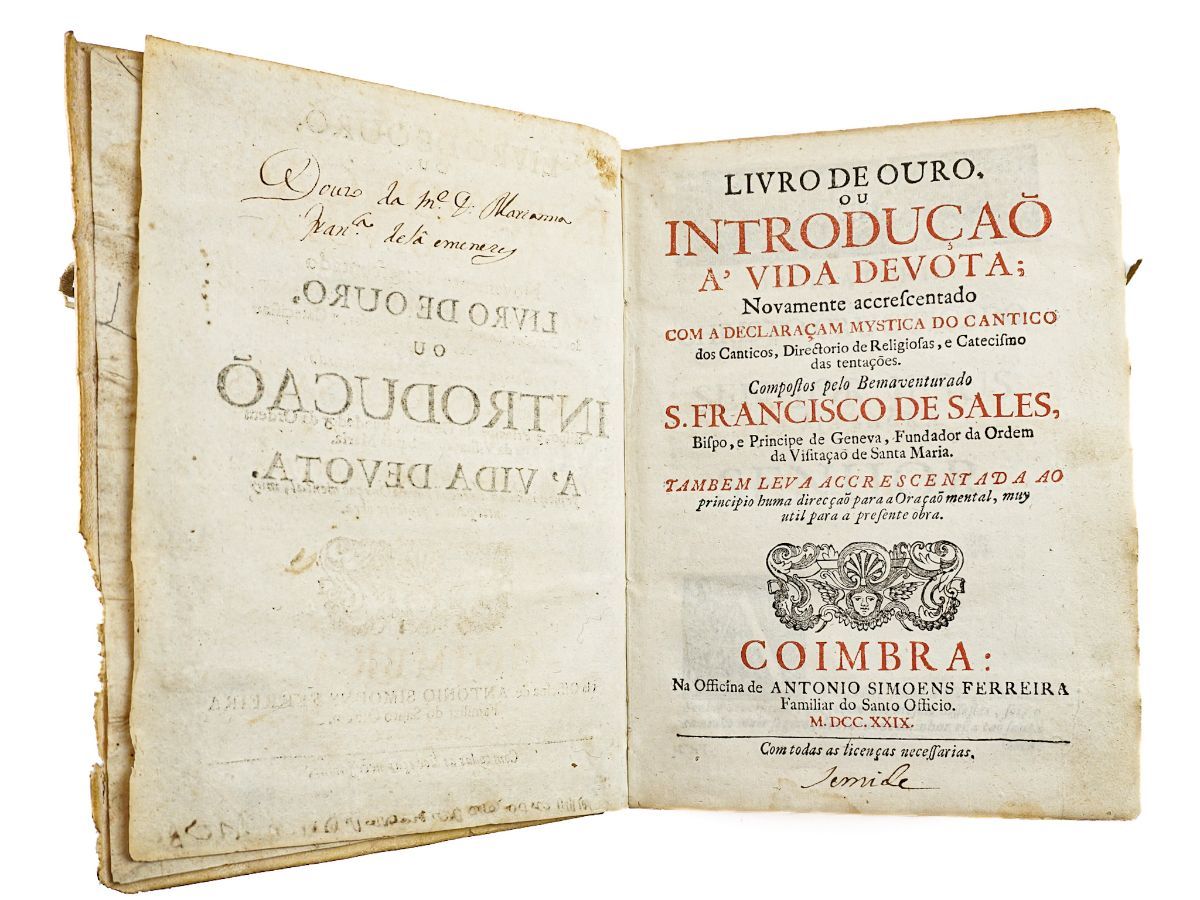 Douro da M.e D. Marianna
Fran.ca de Sâ e menezes
LIVRO DE OURO,
OU
INTRODUCAÕ
A' VIDA DEVOTA.
LIVRO DE OURO.
OU
INTRODUÇAÕ
A' VIDA DEVOTA;
Novamente accreſcentado
COM A DECLARAÇAM MYSTICA DO CANTICO
dos Canticos, Directorio de Religioſas, e Cateciſmo
das tentações.
Compoſtos pelo Bemaventurado
S. FRANCISCO DE SALES,
Biſpo, e Principe de Geneva, Fundador da Ordem
da Viſitaçaõ de Santa Maria.
TAMBEM LEVA ACCRESCENTADA AO
principio huma direcçaõ para a Oraçaõ mental, muy
util para a preſente obra.
COIMBRA:
Na Officina de ANTONIO SIMOENS FERREIRA
Familiar do Santo Officio.
M. DCC. XXIX.
Com todas as licenças neceſſarias.
Semide